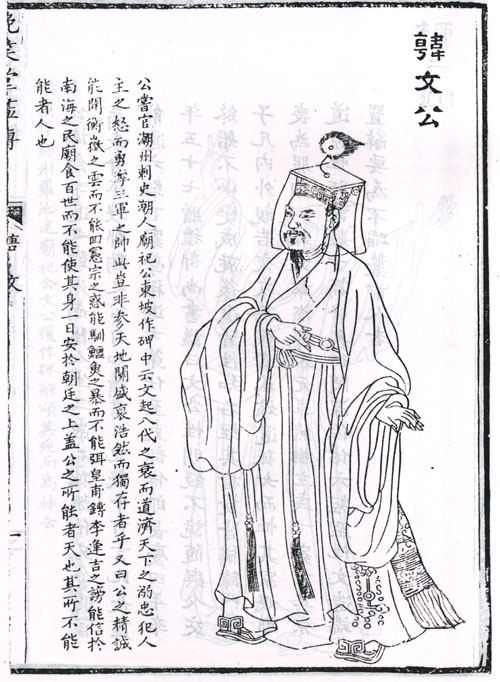 韓文公
公嘗官潮州刺史潮人廟祀公東坡作碑中云文起八代之衰而道濟天下之溺忠犯人
主之怒而勇奪三軍之帥此豈非參天地關盛衰浩然而獨存者乎又曰公之精誠
能開衡嶽之雲而不能回憲宗之惑能馴鱷魚之暴而不能弭皇甫鎛李逢吉之謗能信於
南海之民廟食百世而不能使其身一日安於朝廷之上盖公之所能者天也其所不能
能者人也